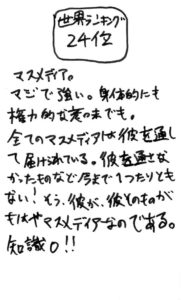 世界ランキング
24位
マスメディア。
マジで強い。身体的にも
権力的な意味までも。
全てのマスメディアは彼を通し
て届けられている。彼を通さな
かったものなど今まで1つたりとも
ない！もう、彼が、彼そのものが
もはやマスメディアーなのである。
知識0!!